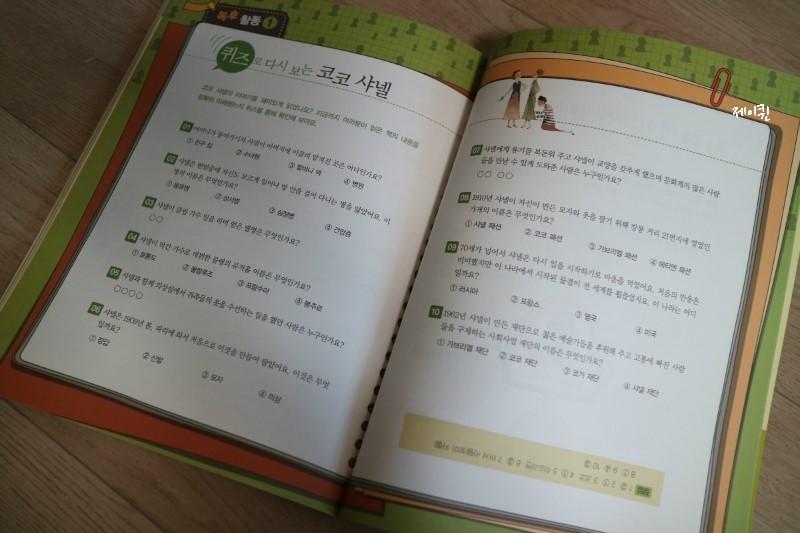 독후 활동 1
퀴즈로 다시 보는 코코 샤넬
코코 샤넬의 이야기를 재미있게 읽었나요? 지금까지 여러분이 읽은 책의 내용을
정확히 이해했는지 퀴즈를 통해 확인해 보아요.
01 어머니가 돌아가시자 샤넬이 아버지에 이끌려 맡겨진 곳은 어디인가요?
① 친구 집 ② 수녀원 ③ 할머니 댁 ④ 병원
02 샤넬은 한밤중에 자신도 모르게 일어나 방 안을 걸어 다니는 병을 앓았어요. 이
병의 이름은 무엇인가요?
① 몽유병 ② 상사병 ③ 심장병 ④ 건망증
03 샤넬이 클럽 가수 일을 하며 얻은 별명은 무엇인가요?
○○
04 샤넬이 막간 가수로 데뷔한 물랭의 뮤직홀 이름은 무엇인가요?
① 로통드 ② 물랭루즈 ③ 프랑수아 ④ 봉주르
05 샤넬과 함께 의상실에서 귀족들의 옷을 수선하는 일을 했던 사람은 누구인가요?
○○○○
06 샤넬은 1909년 봄, 파리에 와서 처음으로 이것을 만들어 팔았어요. 이것은 무엇
일까요?
① 장갑 ② 신발 ③ 모자 ④ 의상
제이퀸
07 샤넬에게 용기를 북돋워 주고 샤넬이 교양을 갖추게 했으며 문화계의 많은 사람
들을 만날 수 있게 도와준 사람은 누구인가요?
○○ ○○
08 1910년 샤넬이 자신이 만든 모자와 옷을 팔기 위해 캉봉 거리 21번지에 열었던
가게의 이름은 무엇인가요?
① 샤넬 패션 ② 코코 패션 ③ 가브리엘 패션 ④ 에티엔 패션
09 70세가 넘어서 샤넬은 다시 일을 시작하기로 마음을 먹었어요. 처음의 반응은
미비했지만 이 나라에서 시작된 물결이 전 세계를 휩쓸었지요. 이 나라는 어디
일까요?
① 러시아 ② 프랑스 ③ 영국 ④ 미국
10 1962년 샤넬이 만든 재단으로 젊은 예술가들을 후원해 주고 고통에 빠진 사람
들을 구제하는 사회사업 재단의 이름은 무엇인가요?
① 가브리엘 재단 ② 코코 재단 ③ 코거 재단 ④ 샤넬 재단
정답